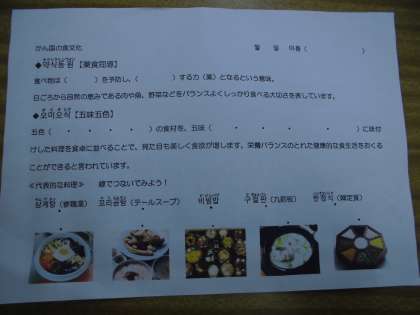 かん国の食文化　　월　일　이름（　　　　）
◆약식동원【薬食同源】
食べ物は（　　　）を予防し、（　　　）する力（薬）となるという意味。
日ごろから自然の恵みである肉や魚、野菜などをバランスよくしっかり食べる大切さを表しています。
◆오미오색【五味五色】
五色（　・　・　・　・　）の食材を、五味（　・　・　・　・　）に味付
けした料理を食卓に並べることで、見た目も美しく食欲が増します。栄養バランスのとれた健康的な食生活をおくる
ことができると言われています。
≪代表的な料理≫　線でつないでみよう！
삼계탕（参鶏湯）　꼬리곰탕（テールスープ）　비빔밥　구절판（九節板）　한정식（韓定食）